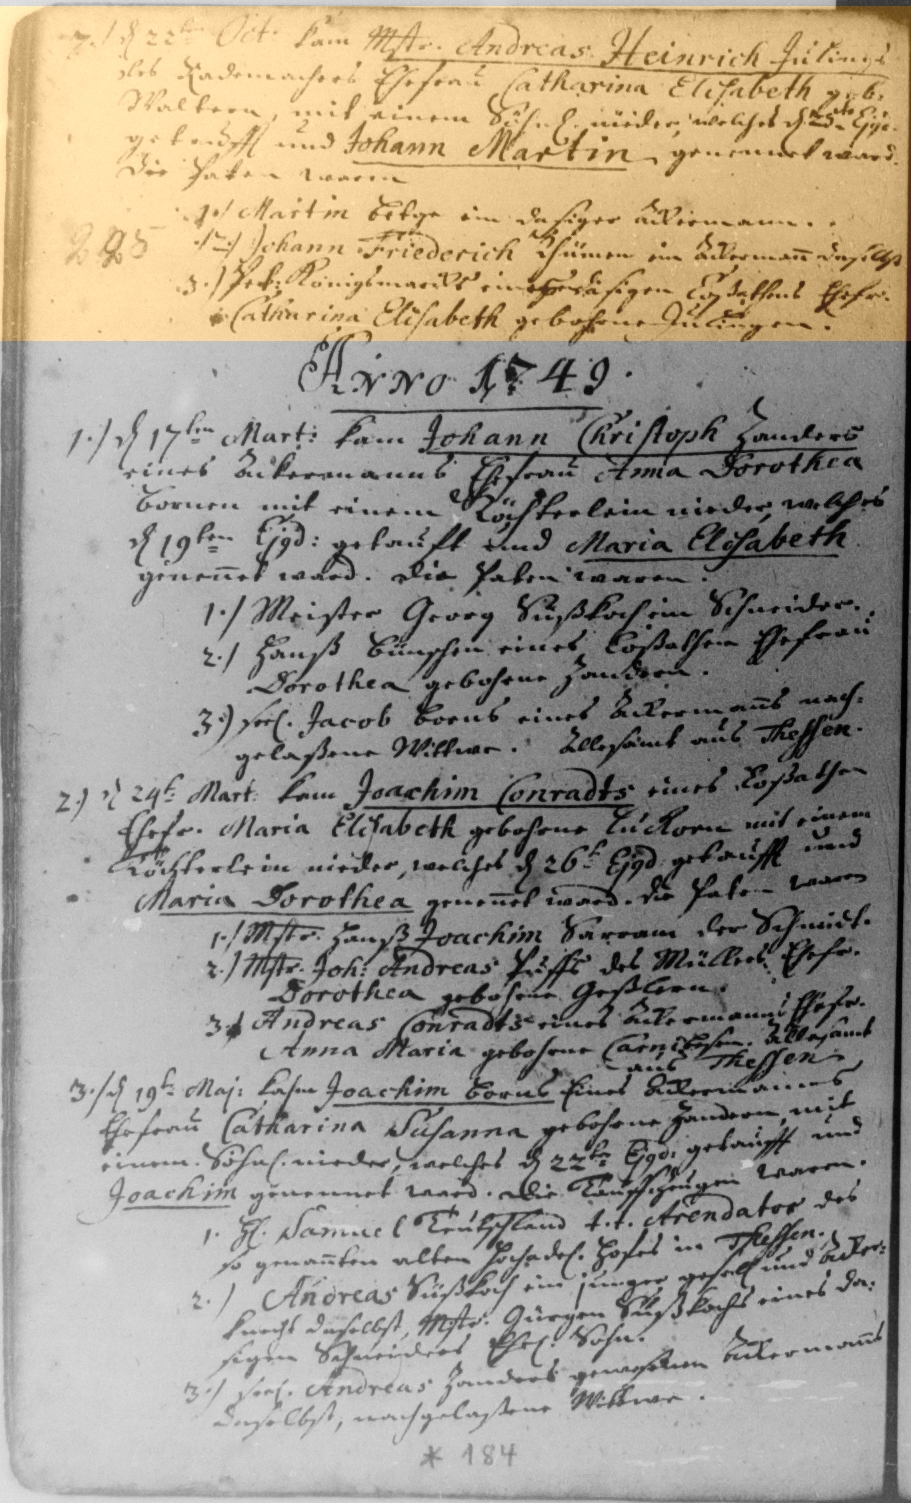 7.) d 22ten Oct: kam Mstr. Andreas Heinrich Jülings
des Rademachers Ehefrau Catharina Elisabeth geb.
Waltern, mit einem Söhnl. nieder, welches d Ejd.
getaufft und Johann Martin genennet ward.
Die Paten waren
1.) Martin Betge ein dasiger Ackermann.
2.) Johann Friederich Thümen ein Ackermañ daselbst
285
3.) Pet: Königsmarcks eines dasigen Coßathens Ehefr.
Catharina Elisabeth gebohrene Jülingen.
Anno 1749.
1.) d 17ten Mart: kam Johann Christoph Zanders
eines Ackermanns Ehefrau Anna Dorothea
Bornen mit einem Töchterlein nieder, welches
d 19ten Ejgd: getauft und Maria Elisabeth
geneñet ward. Die Paten waren.
1.) Meister Georg Süßkoch ein Schneider.
2.) Hanß Bünschen eines Coßathen Ehefrau
Dorothea gebohrne Zandern.
3.) seel. Jacob Borns eines Ackermañs nach-
gelaßene Wittwe. Allesamt aus Theßen.
2.) d 24t. Mart: kam Joachim Conradts eines Coßathen
Ehefr. Maria Elisabeth gebohrne Lückorn mit einem
Töchterlein nieder, welches d 26t Ejgd getaufft und
Maria Dorothea geneñet ward. die Paten waren
1.) Mstr. Hanß Joachim Sarram der Schmidt.
2.) Mstr. Joh: Andreas Puffs des Müllers Ehefr.
Dorothea gebohrne Geßlern.
3.) Andreas Conradts eines Ackermanns Ehefr.
Anna Maria gebohrne Allesamt
aus Theßen
3.) d 19t. Maj: kahm Joachim Borns Eines Ackermanns
Ehefrau Catharina Susanna gebohrne Zandern, mit
einem Söhnl. nieder, welches d 22ten Ejgd: getaufft und
Joachim genennet ward. Die Tauffzeugen waren.
1. H. Samuel Teutschland t.t. Arendator des
so genañten alten Hochadel. Hofes in Theßen.
2.) Andreas Süßkoch ein junger gesell und Acker-
knecht daselbst, Mstr. Jürgen Süßkochs eines da-
sigen Schneiders Ehel. Sohn.
3.) seel. Andreas Zanders gewesenen Ackermanns
daselbst, nachgelaßene Wittwe.
* 184